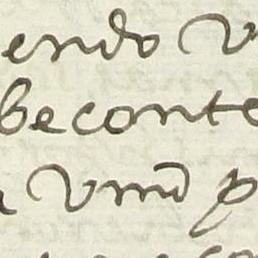 endo v
be conte
Vmd p